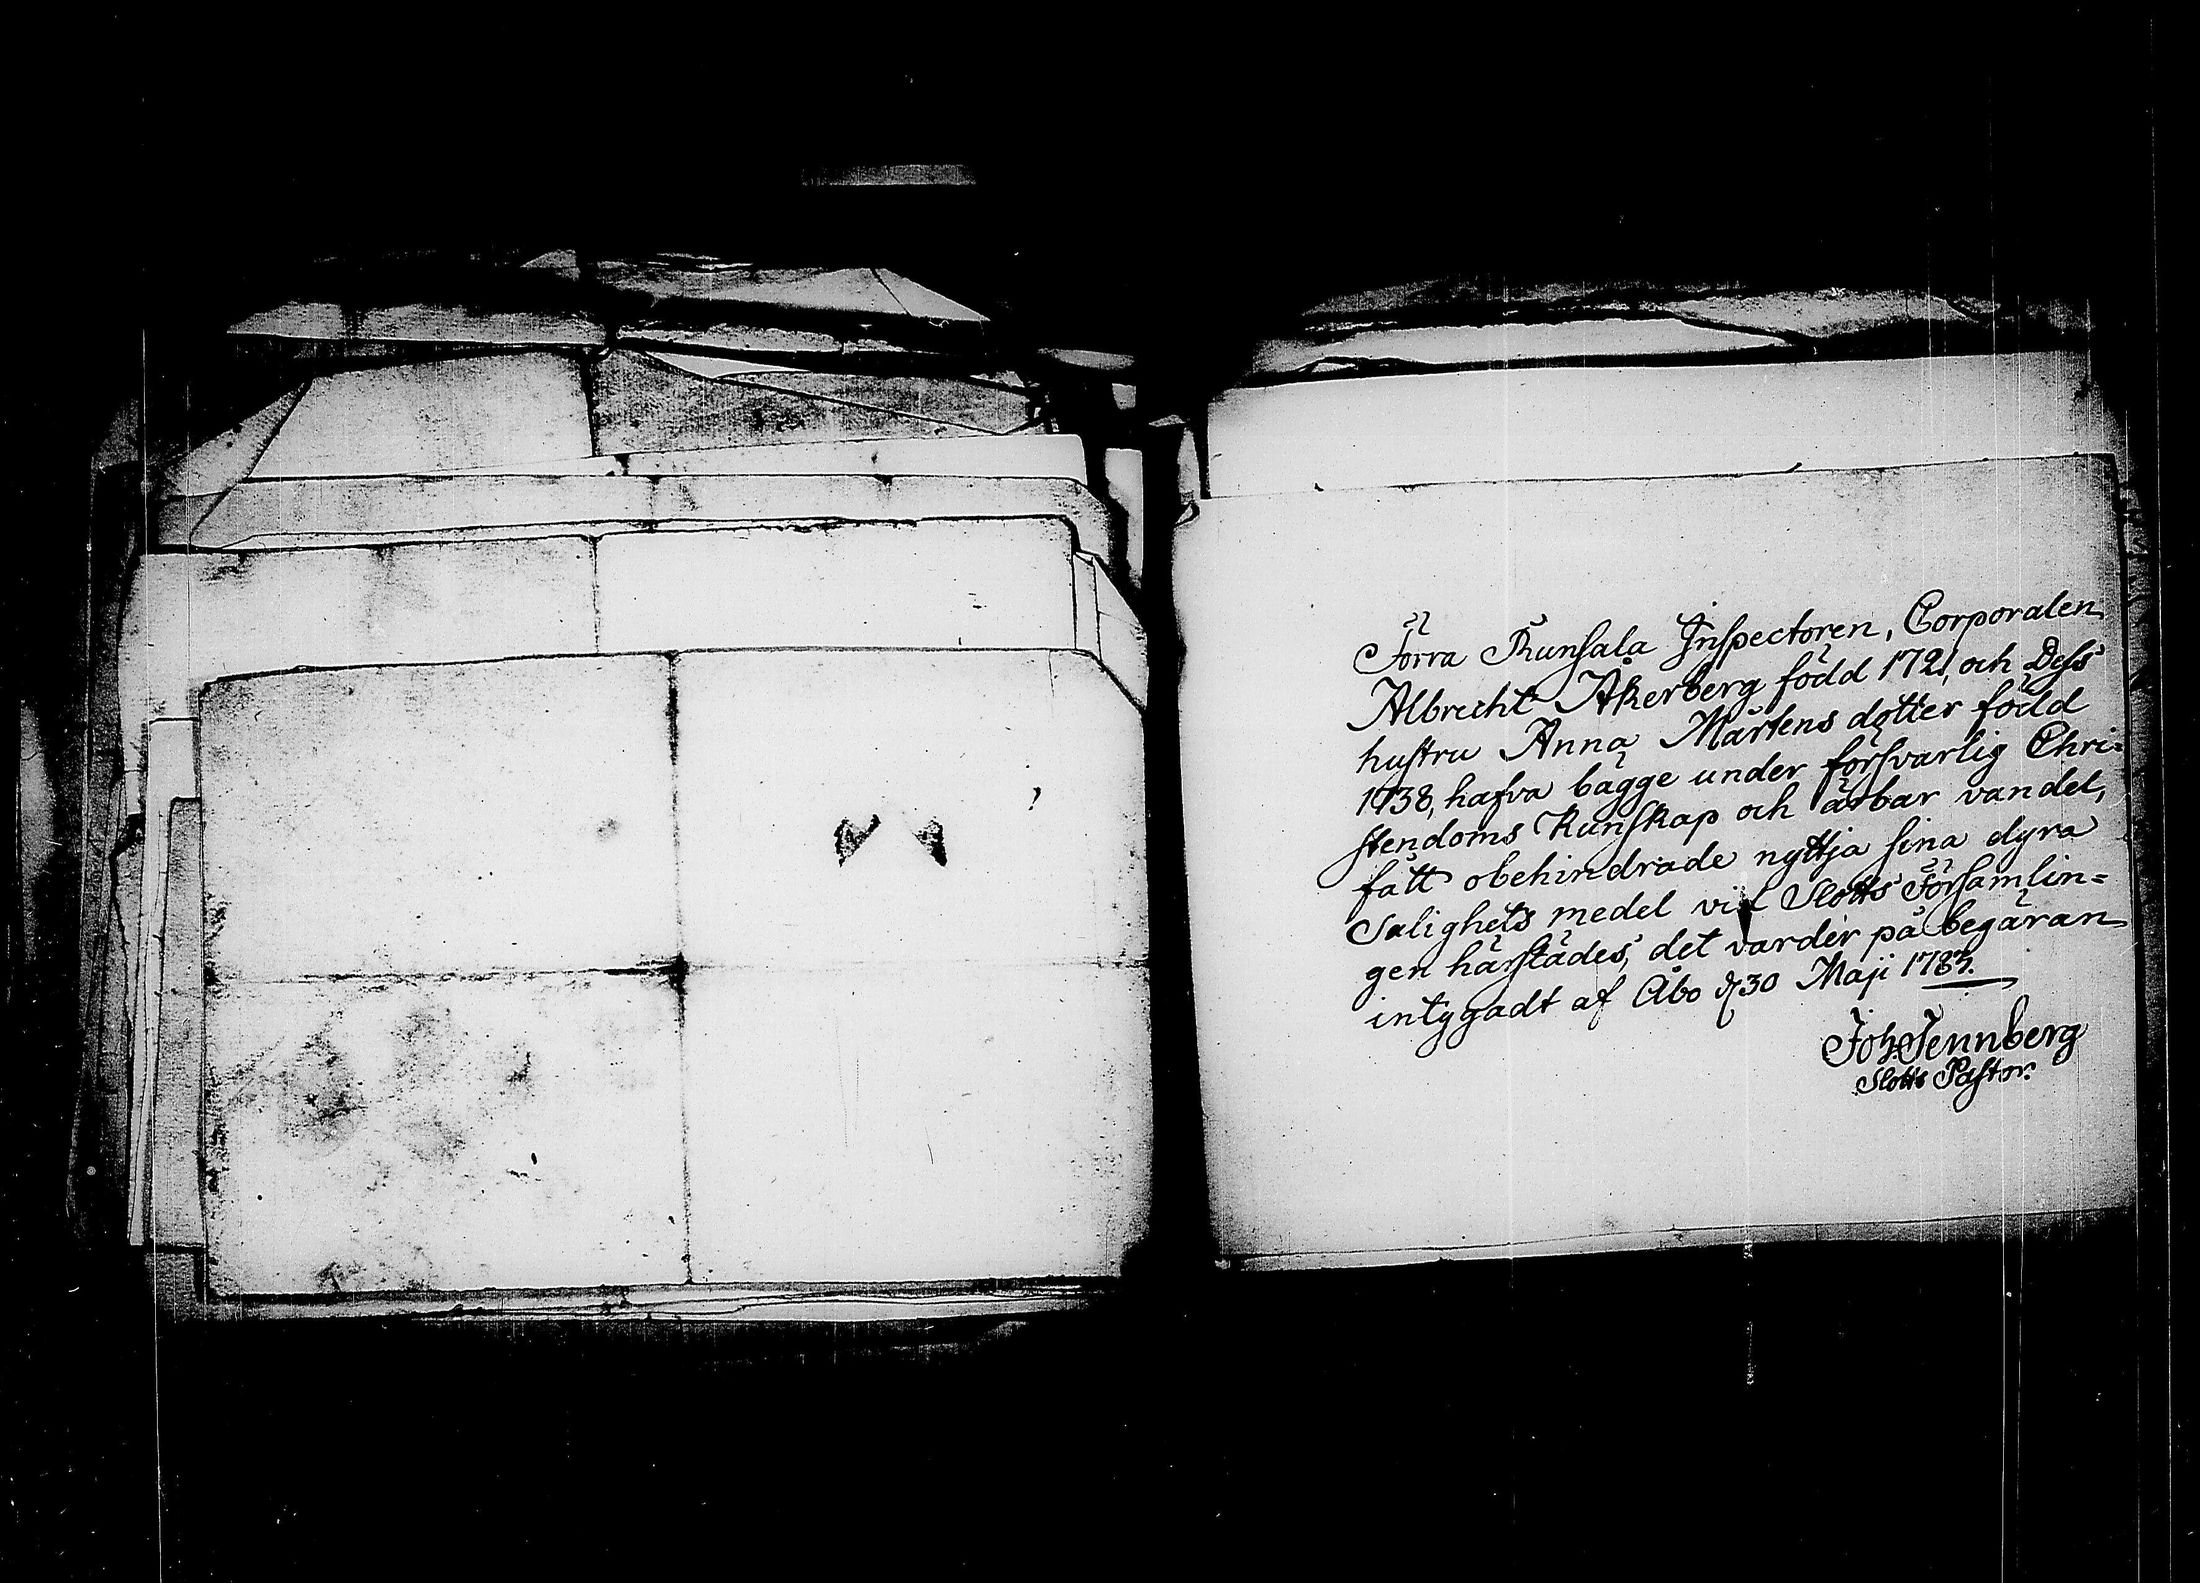 Förra Runsala Inspectoren, Corporalen
Albrecht Åkerberg född 1721, och Dess
hustru Anna Mårtens dotter född
1738, hafva bägge under försvarlig Chri-
stendoms kunskap och ärbar vandel,
fått obehindrade nyttja sina dyra
Salighets medel vid Slotts Församlin=
gen härstädes, det varder på begäran
intygadt af Åbo d 30 Maji 1783.
Joh. Tennberg
Slotts Pastor.